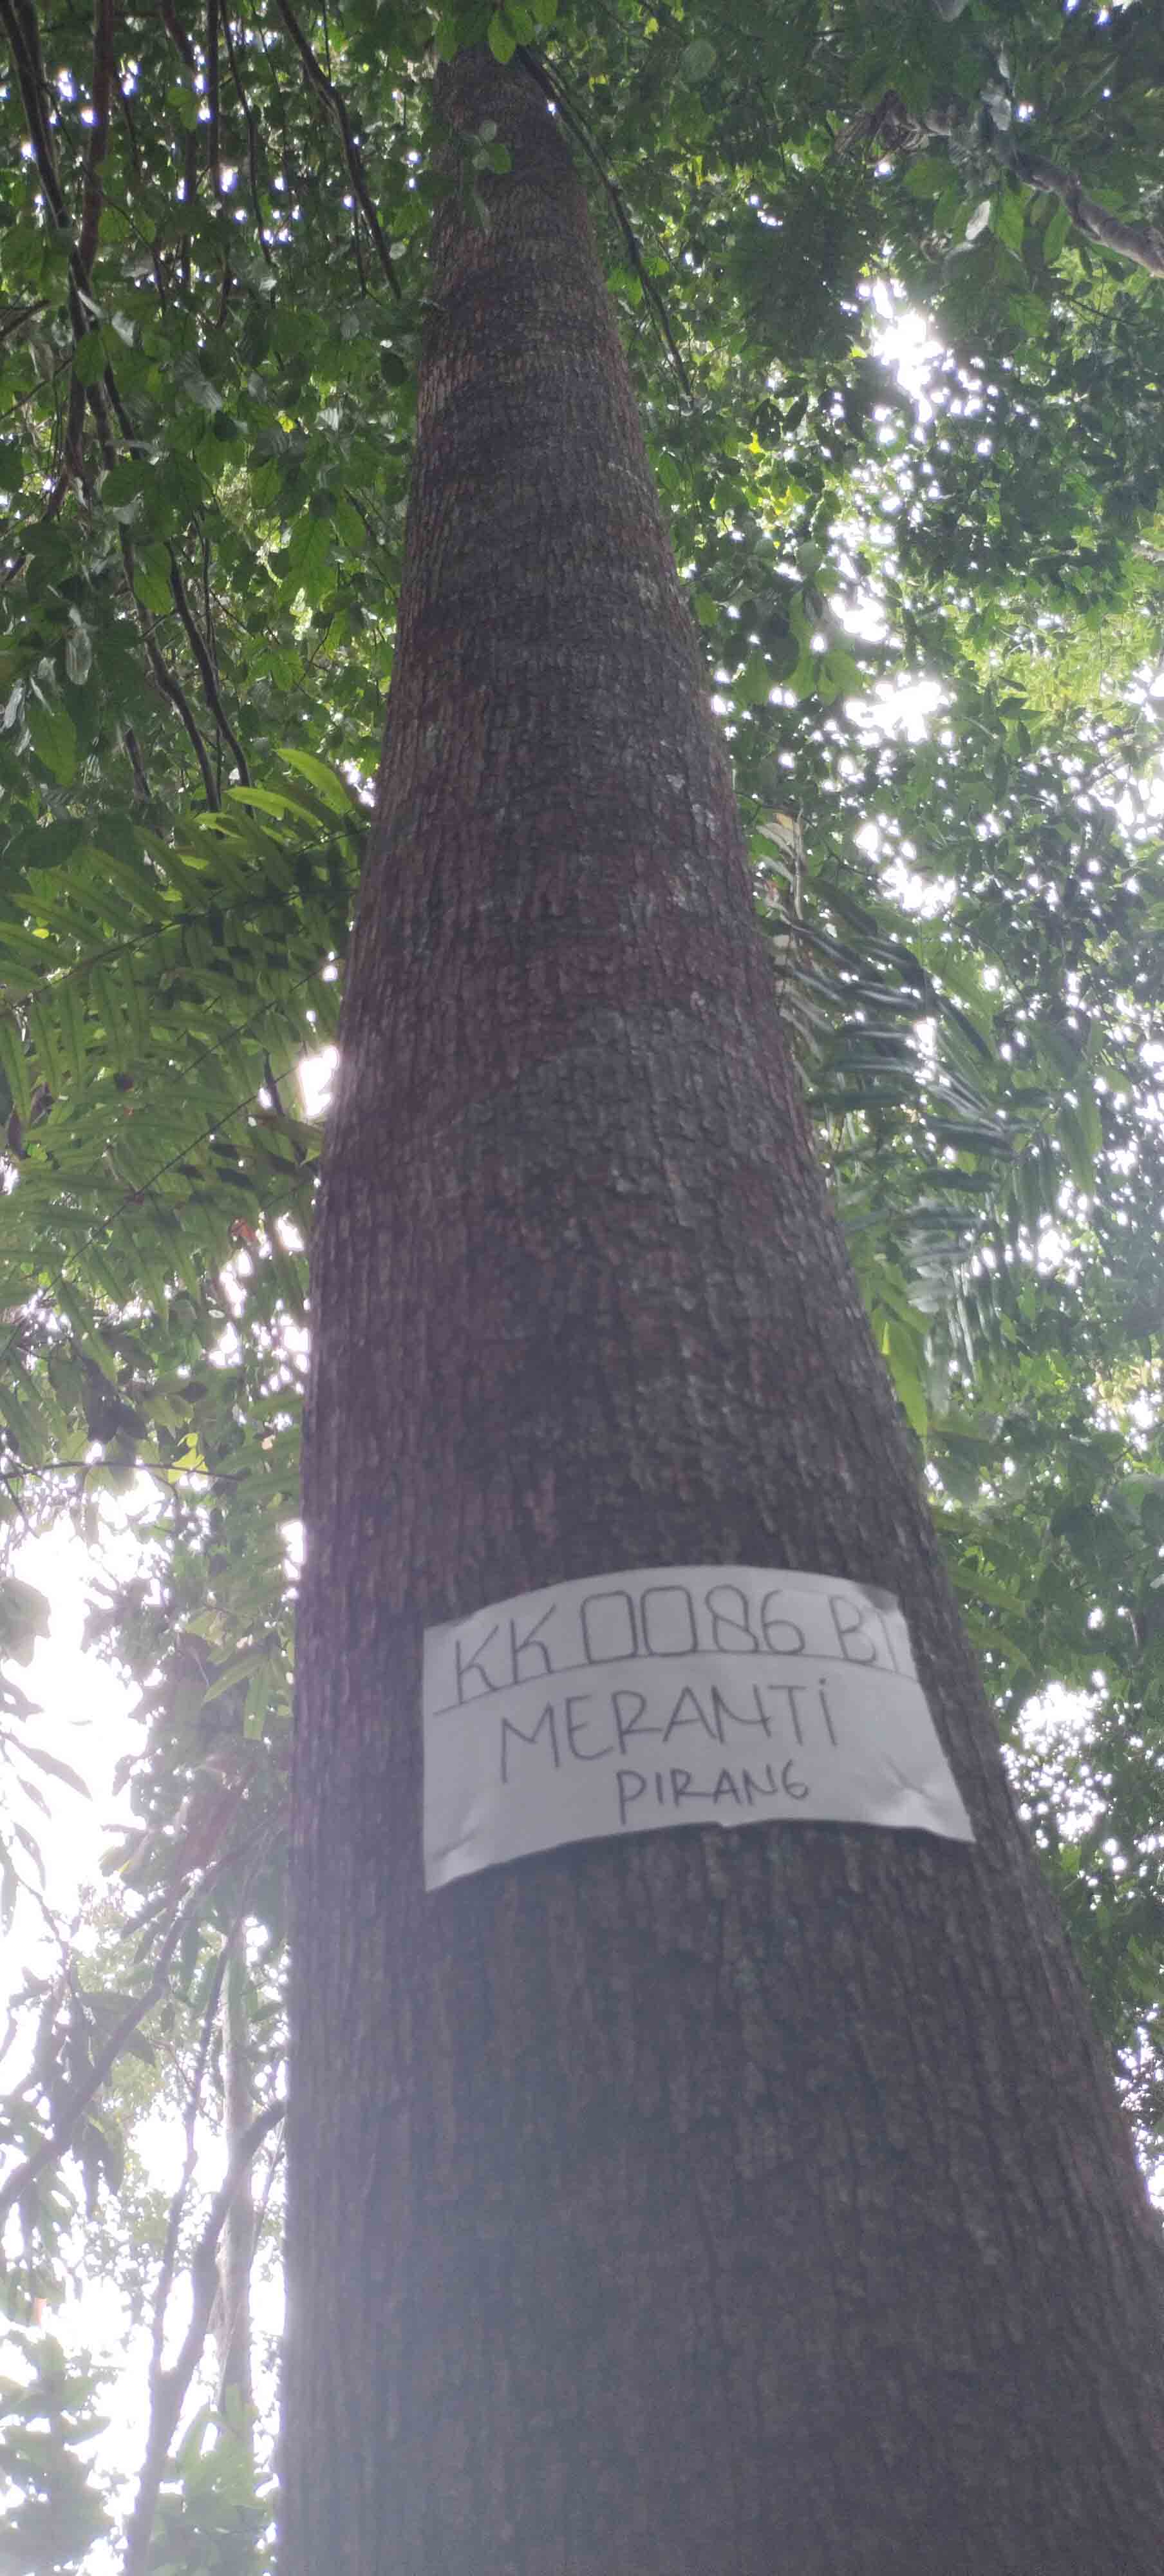 KK0086 BT
MERANTi
PIRANG